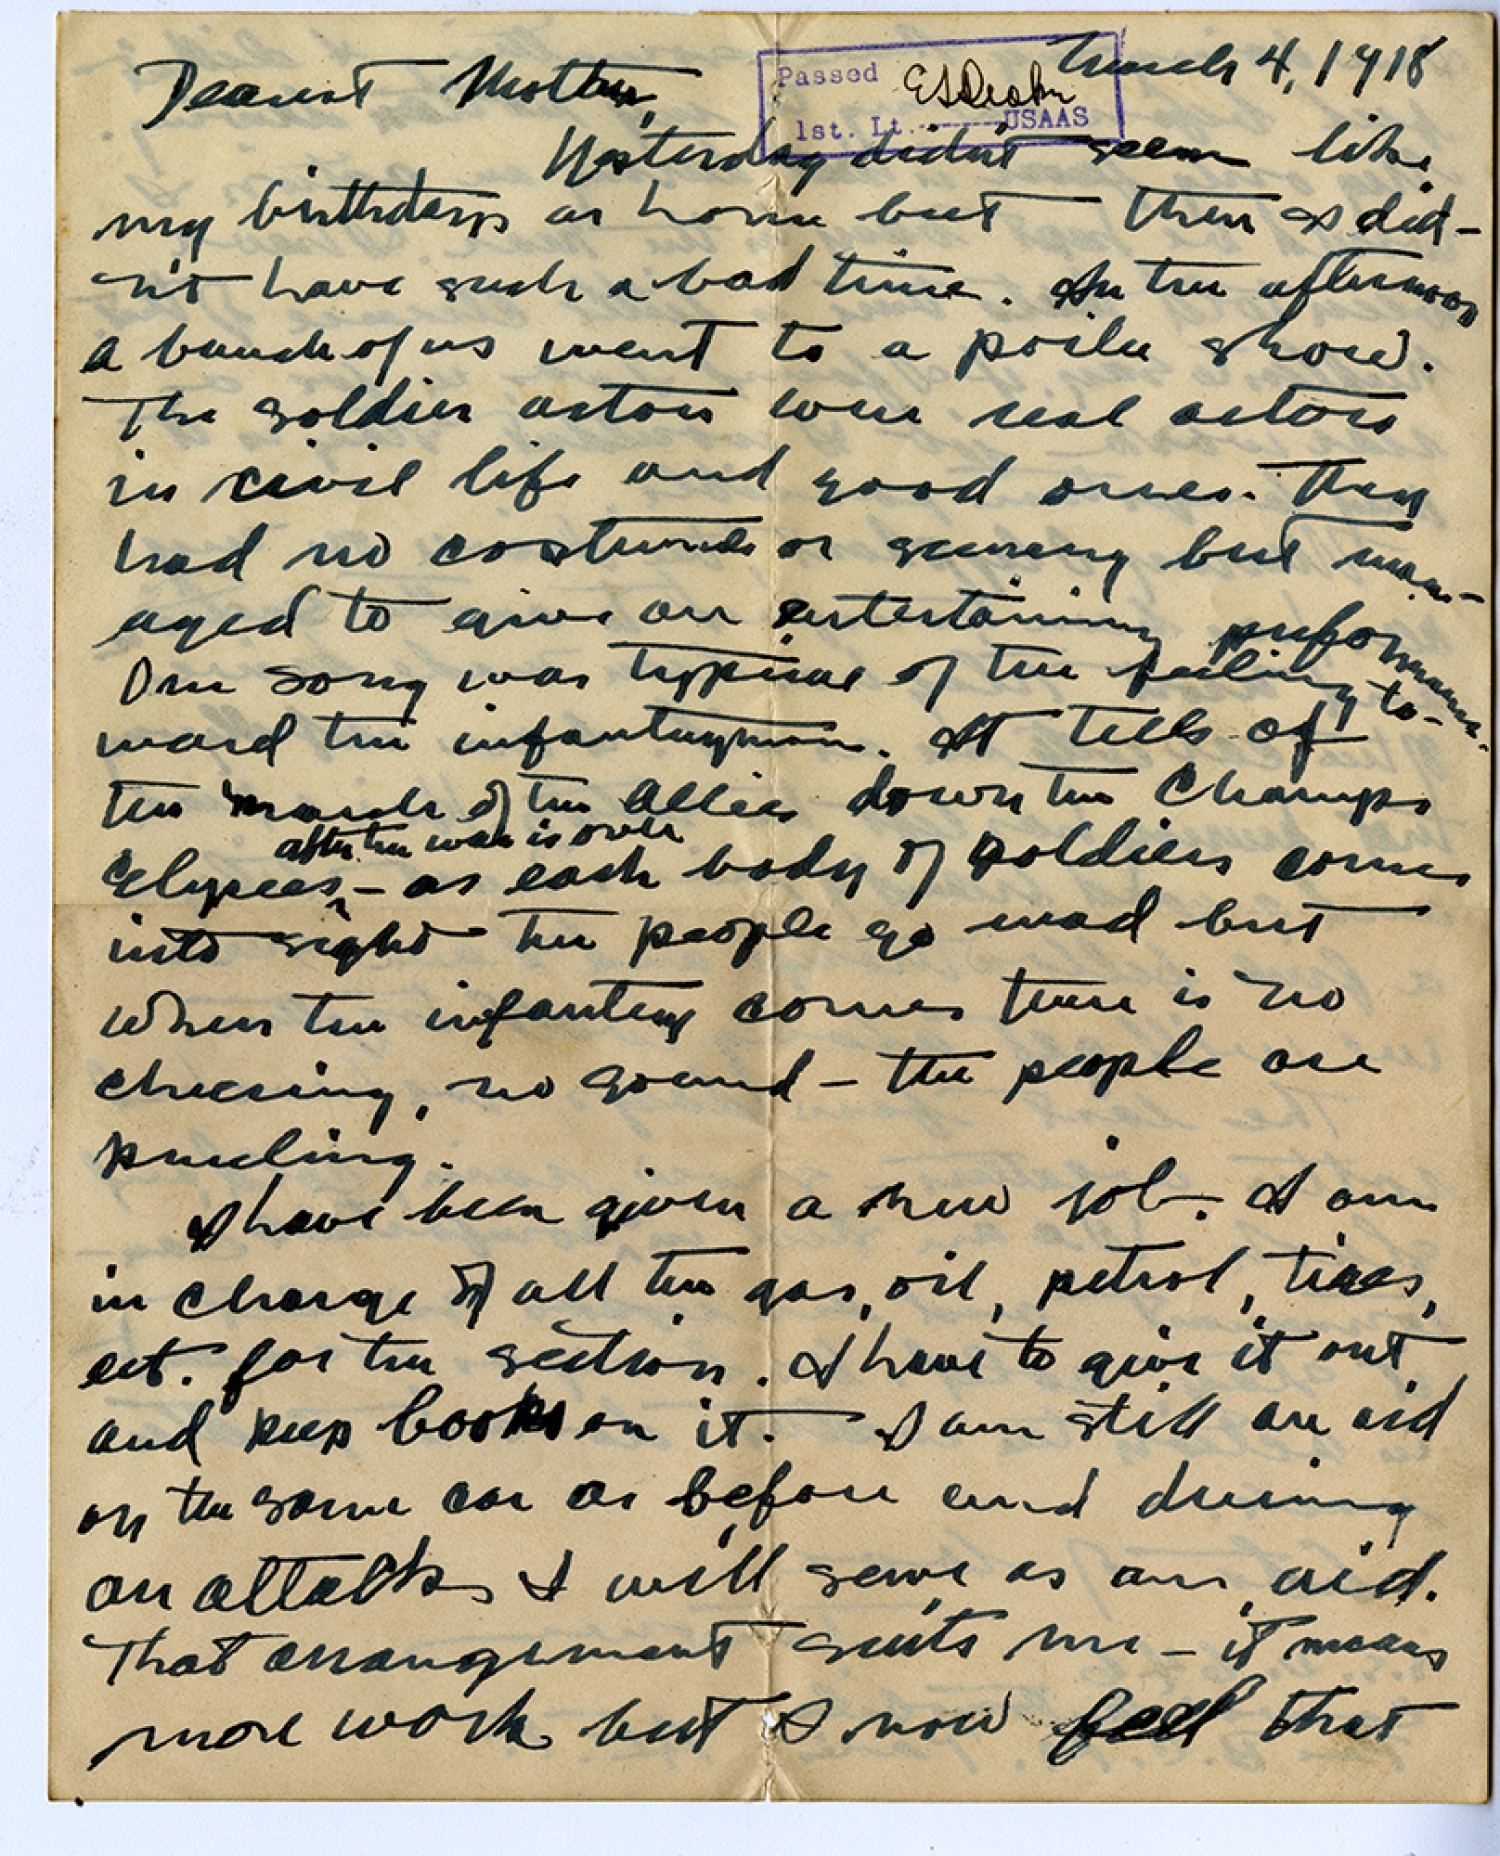 March 4, 1918
Passed
1st. Lt. USAAS
Dearest Mother,
Yesterday didn't seem like
my birthdays at home but then I did-
n't have such a bad time. In the afternoon
a bunch of us went to a poilu show.
The soldier actors were real actors
in civil life and good ones. They
had no costumes or scenery but man-
aged to give an entertaining performance.
One song was typical of the feeling to-
ward the infantryman. It tells of
the march of the Allies down the Champs
after the war is over
Elysees - as each body of soldiers comes
into sight the people go mad but
when the infantry comes there is no
cheering, no sound - the people are
kneeling.
I have been given a new job. I am
in charge of all the gas, oil, petrol, tires,
ect. for the section. I have to give it out
and keep books on it. I am still an aid
on the same car as before and during
an attack I will serve as an aid.
That arrangement suits me - it means
more work but I now feel that